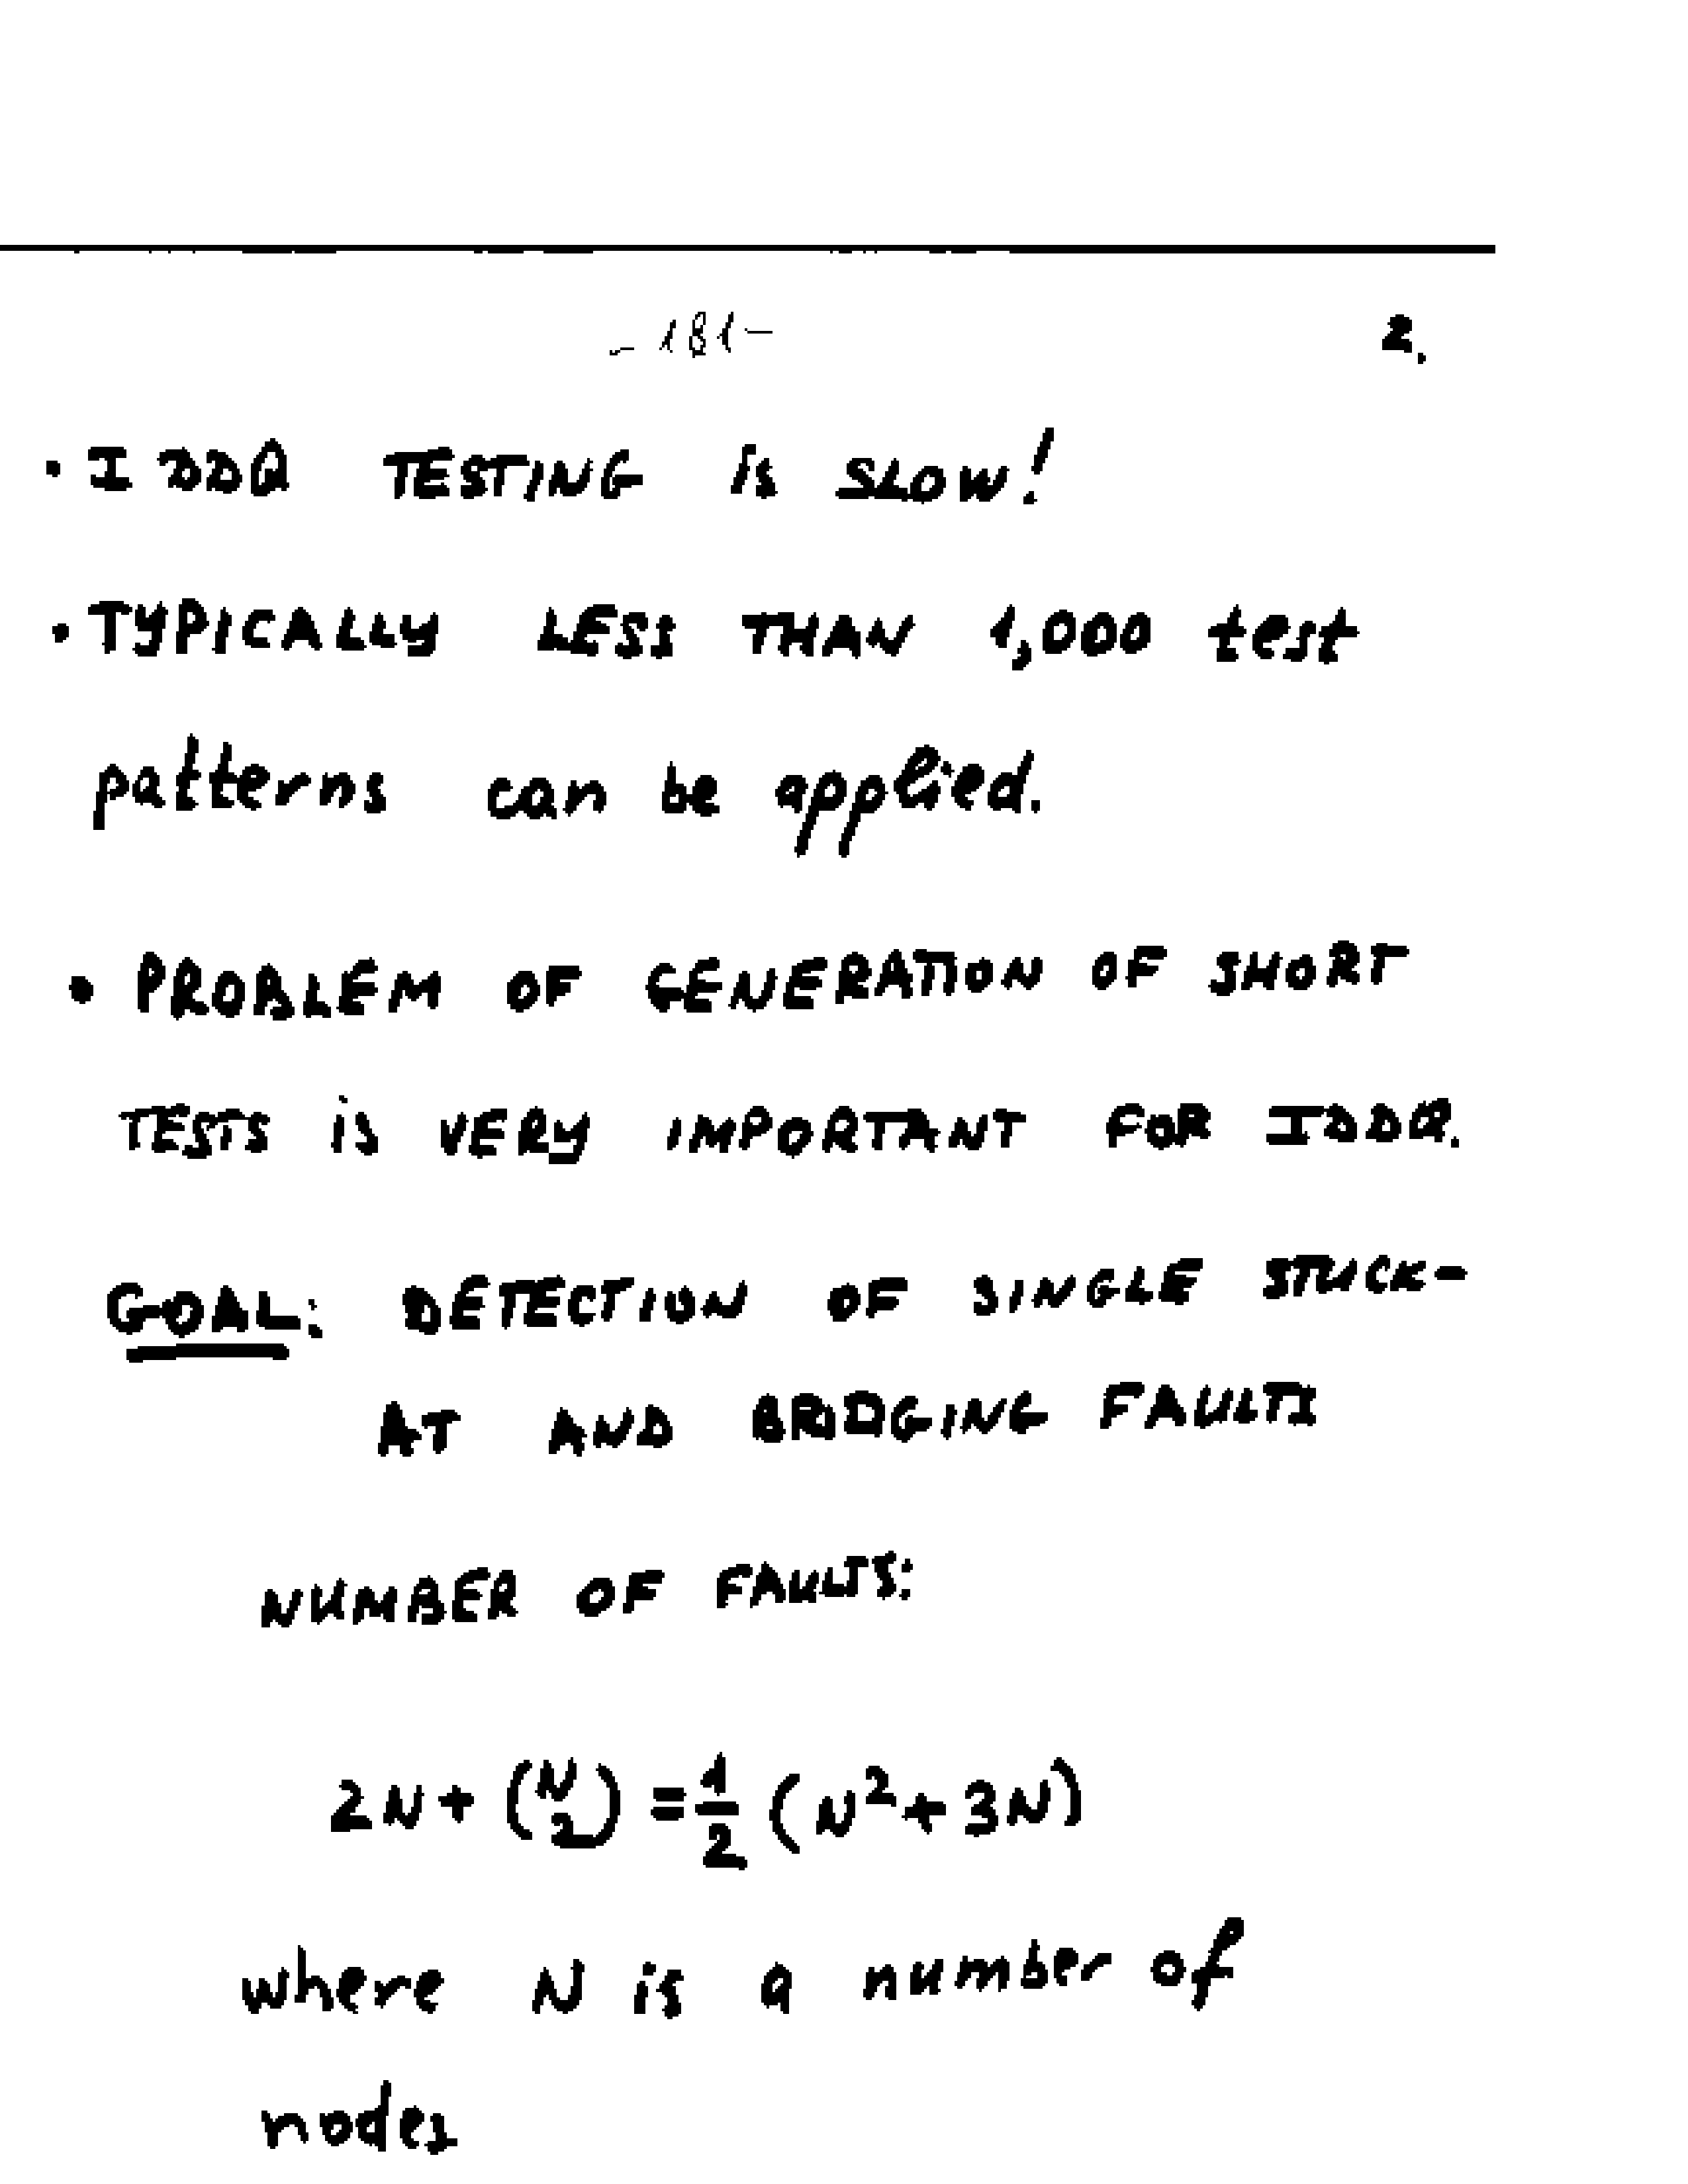 - 181 -
2.
• IDDQ TESTING is SLOW!
• TYPICALLY LESS THAN 1,000 test
patterns can be applied.
• PROBLEM OF GENERATION OF SHORT
TESTS is VERY IMPORTANT FOR IDDQ.
GOAL: DETECTION OF SINGLE STUCK-
AT AND BRIDGING FAULTS
NUMBER OF FAULTS:
2N + (N 2) = 1/2 (N² + 3N)
where N is a number of
nodes